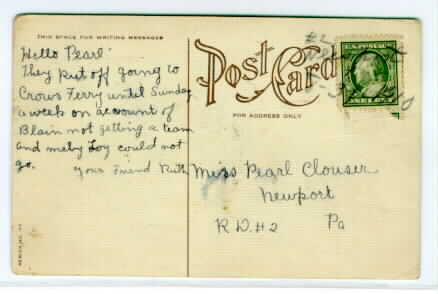 THIS SPACE FOR WRITING MESSAGES
Hello Pearl
They put off going to
Crows Ferry until Sunday
a week on account of
Blain not getting a team
and meby Loy could not
go.
Your Friend Ruth
Post Card
FOR ADDRESS ONLY
#2
Miss Pearl Clouser
Newport
R.D. #2 Pa